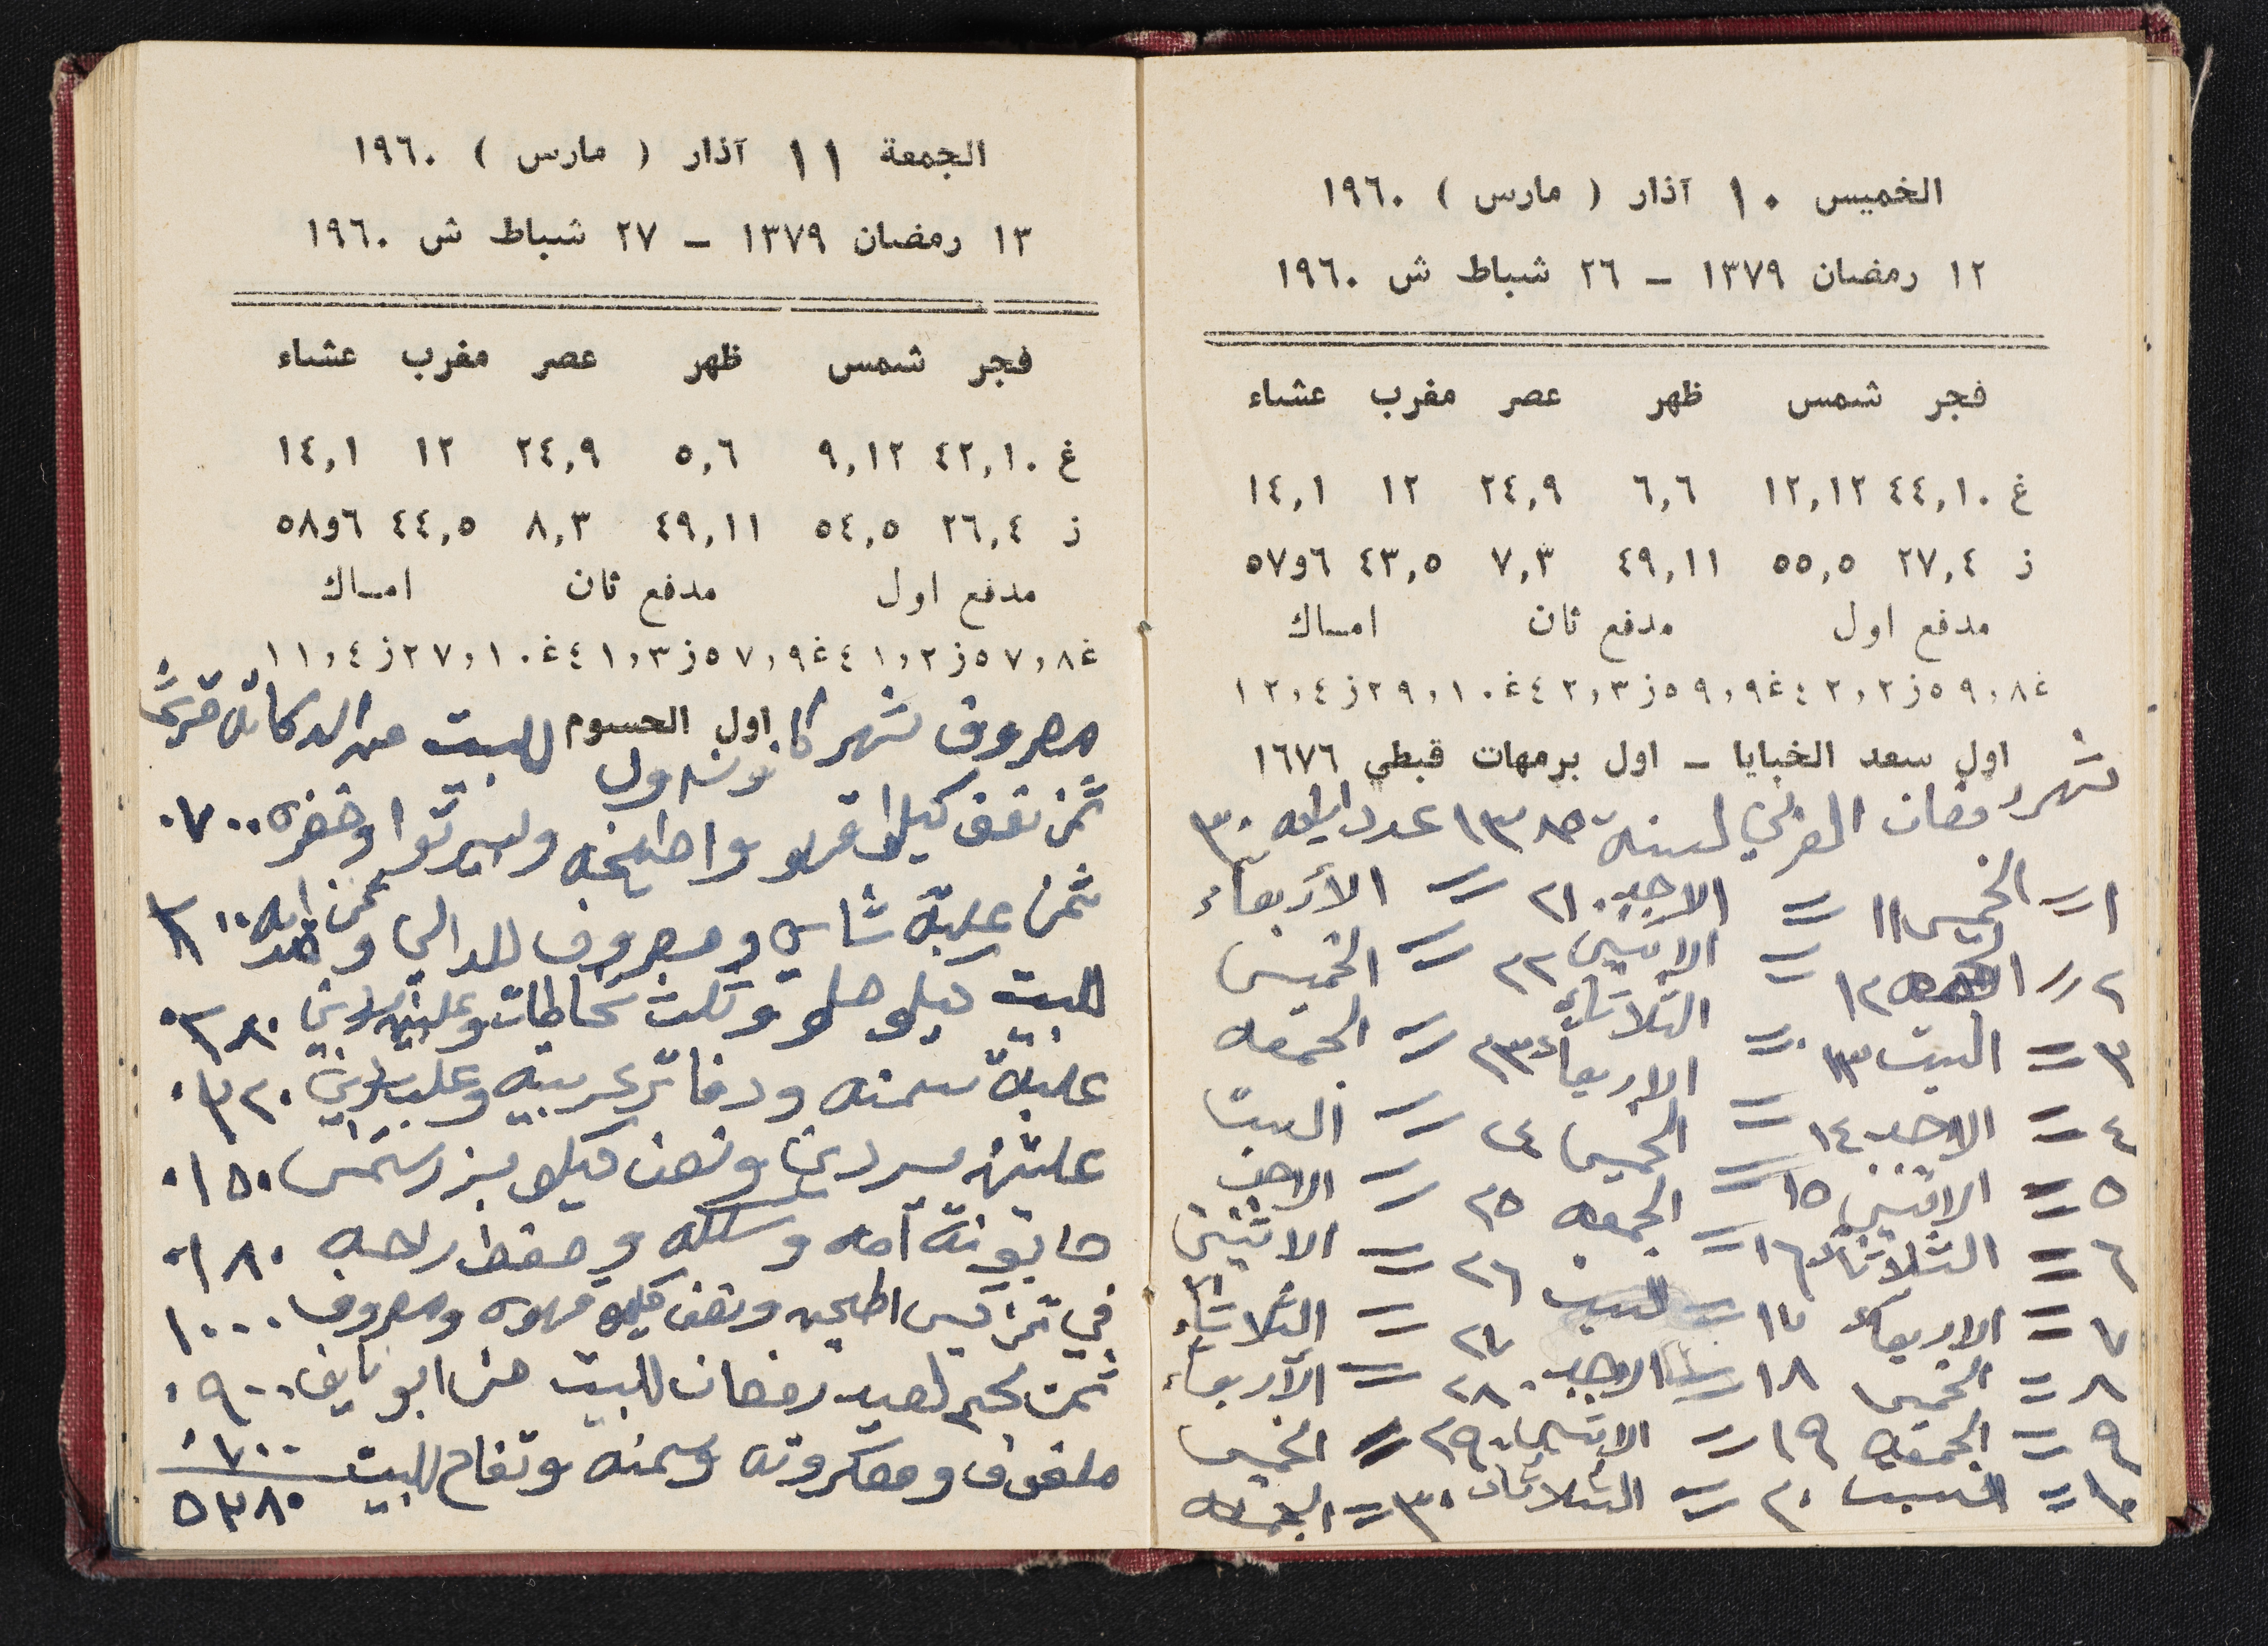 الخميس ١٠ آذار ( مارس ) ١٩٦٠
١٢ رمضان ١٣٧٩ – ٢٦ شباط ش ١٩٦٠
فجر شمس ظهر عصر مغرب عشاء
غ ٤٤,١٠ ١٢,١٢ ٦,٦ ٢٤,٩ ١٢ ١٤,١
ز ٢٧,٤ ٥٥,٥ ٤٩,١١ ٧,٣ ٤٣,٥ ٦و٥٧
مدفع اول مدفع ثان امساك
غ٥٩,٨ز٤٢,٢غ٥٩,٩ز٤٢,٣غ٢٩,١٠ز١٢,٤
اول سعد الخبايا – اول برمهات قبطي ١٦٧٦
شهر رمضان لسنة ١٣٨٥ عدد ايامه ٣٠
١ = الخميس ١١ = الاحد ٢١ = الأربعاء
٢ = ١٢ = الاثنين ٢٢ = الخميس
٣ = السبت ١٣ = الثلاثاء ٢٣ = الجمعه
٤ = الاحد ١٤ = الاربعاء
الخميس ٢٤ = السبت
٥ = الاثنين ١٥ = الجمعه ٢٥ = الاحد
٦ = الثلاثاء ١٦ = السبت ٢٦ = الاثنين
٧ = الاربعاء ١٧ = الاحد ٢٧ = الثلاثاء
٨ = الخميس ١٨ = ٢٨ = الأربعاء
٩ = الجمعه ١٩ = الاثنين ٢٩ = الخميس
١٠ = السبت ٢٠ = الثلاثاء ٣٠ = الجمعه
الجمعة ١١ آذار ( مارس ) ١٩٦٠
١٣ رمضان ١٣٧٩ – ٢٧ شباط ش ١٩٦٠
فجر شمس ظهر عصر مغرب عشاء
غ ٤٢,١٠ ٩,١٢ ٥,٦ ٢٤,٩ ١٢ ١٤,١
ز ٢٦,٤ ٥٤,٥ ٤٩,١١ ٨,٣ ٤٤,٥ ٦و٥٨
مدفع اول مدفع ثان امساك
غ٥٧,٨ز٤١,٢غ٥٧,٩ز٤١,٣غ٢٧,١٠ز١١,٤
اول الحسوم
مصروف شهر كانون اول للبيت من الدكانه
ثمن نصف كيلو وخضره ٠٧٠٠
ثمن علبة شاي ومصروف
للبيت كيلو حلو وتلت ٠٣٨٠
علبة سمنه ودفاتر عربيه ٠٣٢٠
علبتين سردين ونصف كيلو بزر شمس ٠١٥٠
صابونة وسلكه ٠١٨٠
في ثمن كيس ونصف كيلو قهوه ومصروف ١٠٠٠
ثمن لحم لعيد رمضان للبيت من ابو نايف ٠٩٠٠
ملفوف ومعكرونه وسمنه وتفاح للبيت ٠٧٠٠
٥٣٨٠